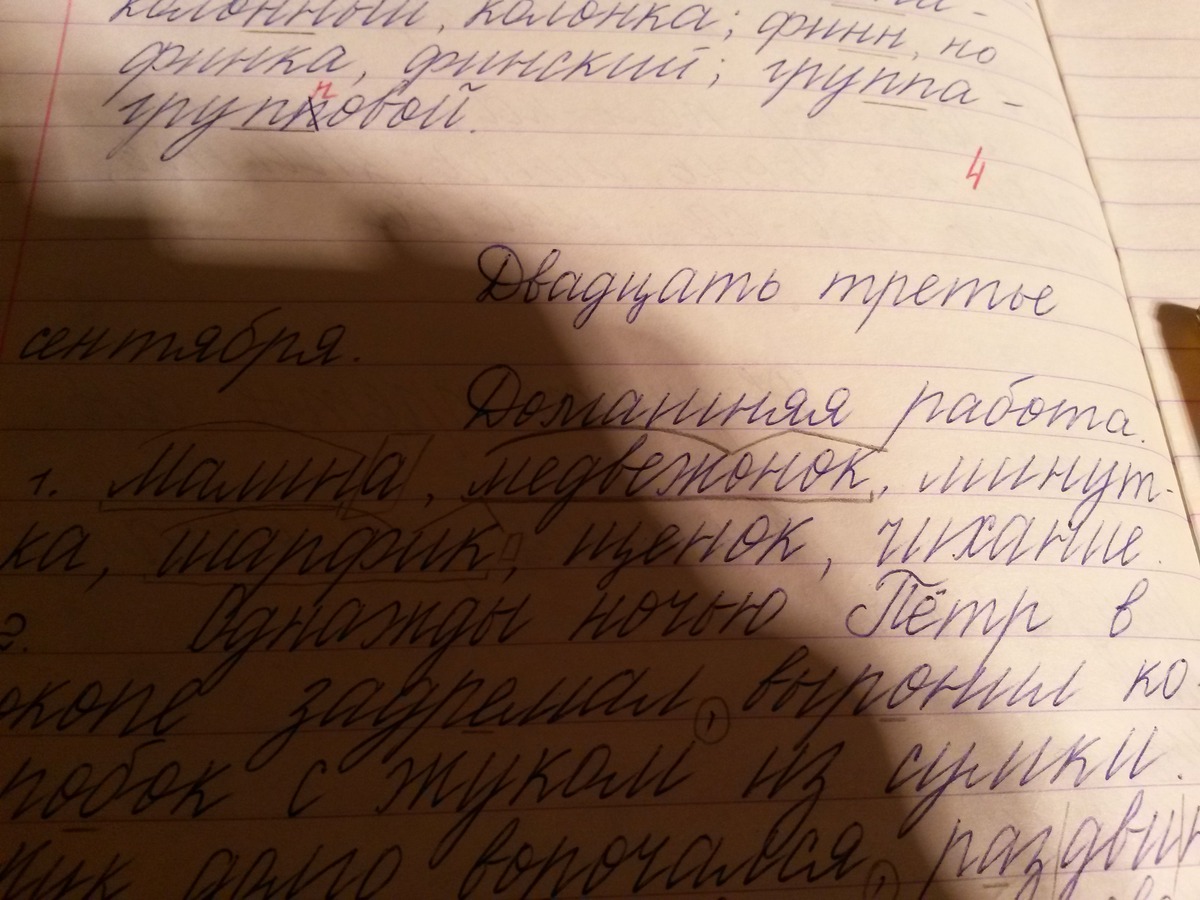 колонный, колонка; финн, но
финка, финский; группа -
групповой.
п
4
Двадцать третье
сентября.
Домашняя работа.
1. Малина, медвежонок, минут-
ка, шарфик, щенок, чихание.
2. Однажды ночью Пётр в
окопе задремал, выронил ко-
робок с жуком из сумки.
Жук долго ворочался, раздвин